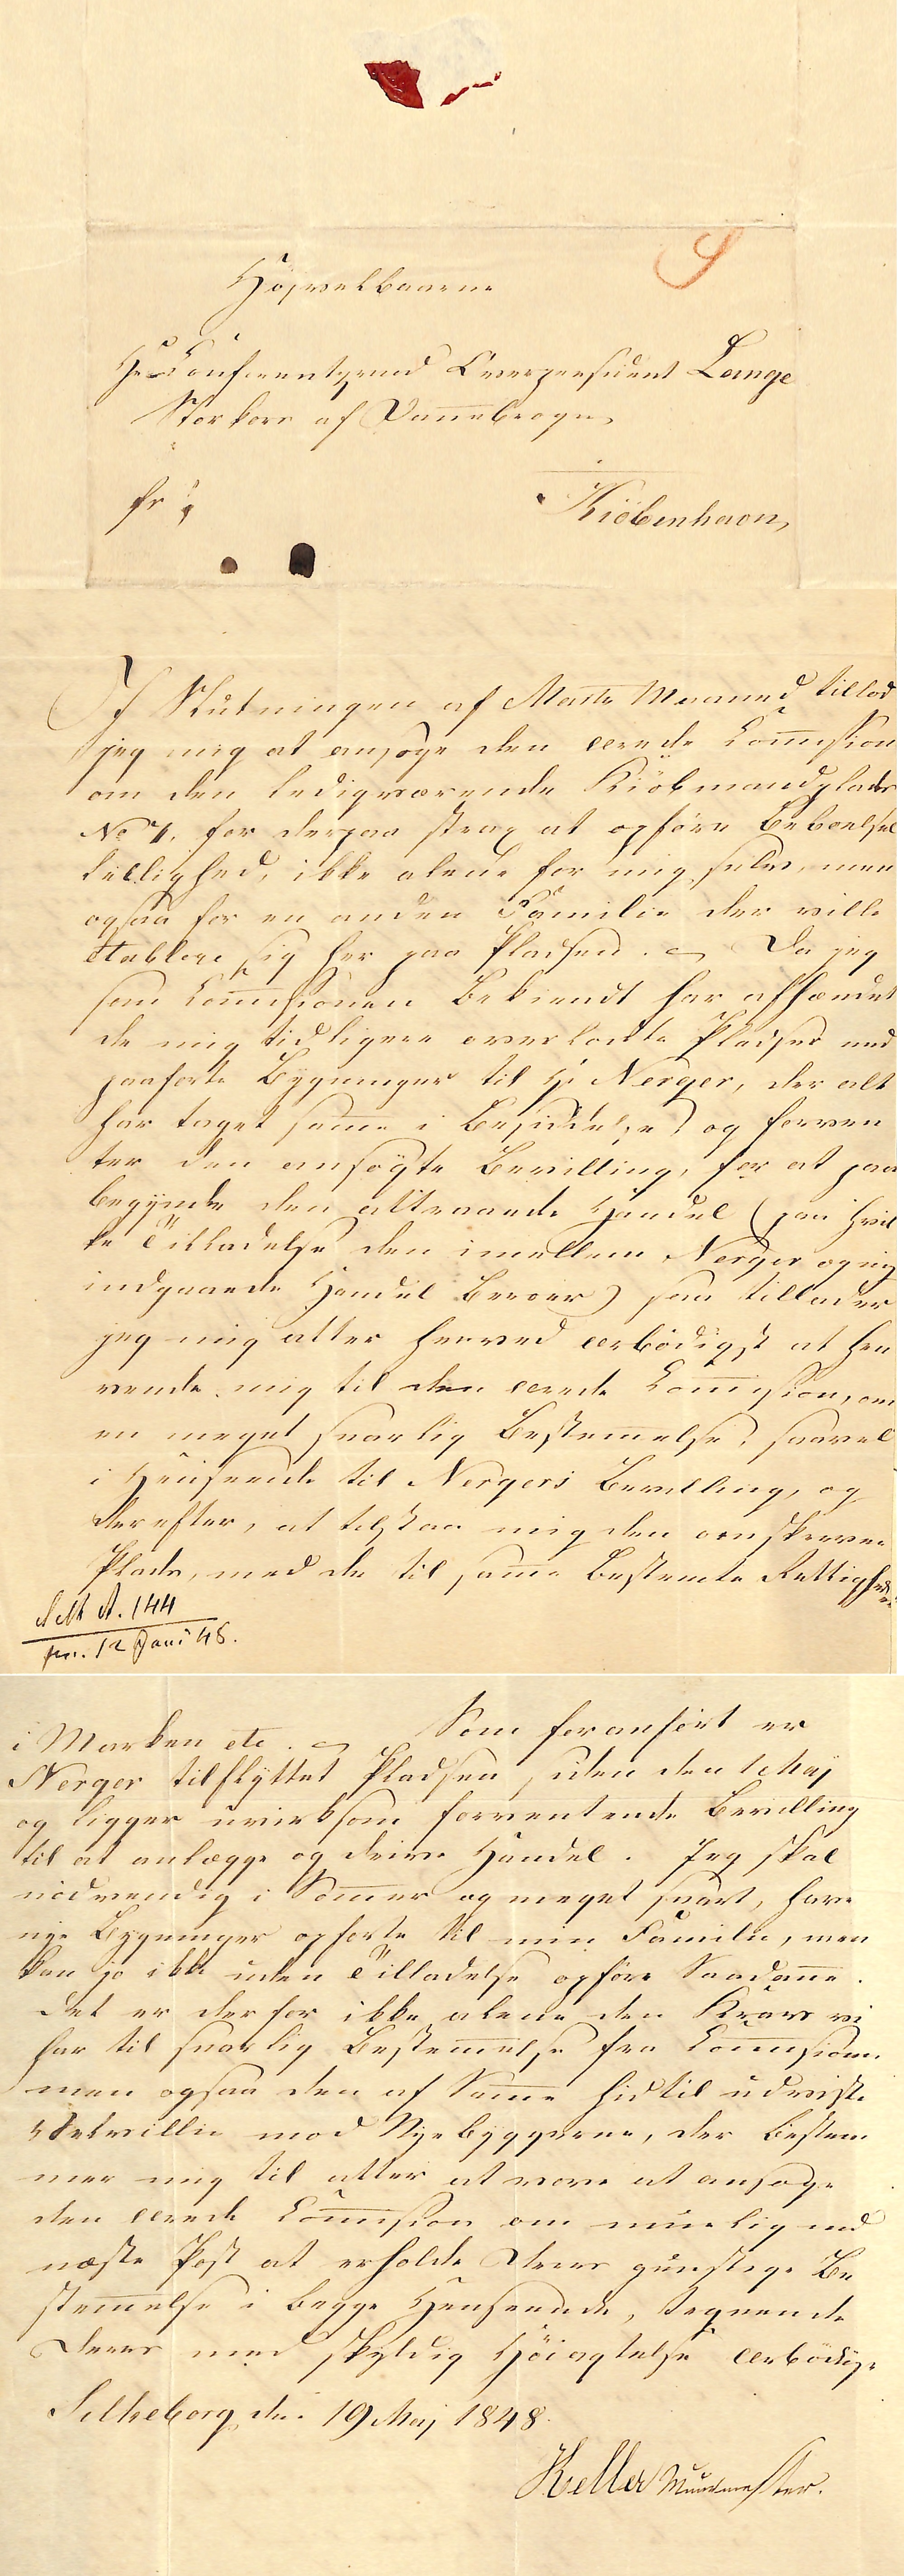 Højvelbaarne
Hr Conferentzraad Overpræsident Lange
Storkors af Dannebroge,
fr
Kiöbenhavn,
I Slutningen af Marts Maaned tillod
jeg mig at ansøge den ærede Commission
om den ledigværende Kiöbmandplads
No 1, for derpaa strax at opføre Beboelses
leilighed, ikke alene for mig selv, men
ogsaa for en anden Familie der ville
etablere sig her paa Pladsen. Da jeg
som Commissionen bekiendt har afhændet
de mig tidligere overladte Pladser med
paaførte Bygninger til Hr Nerger, der alt
har taget samme i Besiddelse og forven
ter den ansøgte Bevilling, for at paa
begynde den attraaede Handel (paa hvil
ke Tilladelse den imellem Nerger og mig
indgaaede Handel beroer) saa tillader
jeg mig atter herved ærbödigst at hen
vende mig til den ærede Commission, om
en meget snarlig Bestemmelse, saavel
i Henseende til Nergers Bevilling, og
derefter, at tilstaa mig den
Plads, med de til samme bestemte Rettigheder
A. 144
pr. 12 Juni 48.
i Marken etc. Som foranført er
Nerger tilflyttet Pladsen siden den 1 Maj
og ligger uvirksom forventende Bevilling
til at anlægge og drive Handel. Jeg skal
nödvendig i Sommer og meget snart, have
nye Bygninger opførte til min Familie, men
kan jo ikke uden Tilladelse opføre Saadanne.
Det er derfor ikke alene den Krav vi
har til snarlig Bestemmelse fra Commissionen
men ogsaa den af Samme hidtil udviste
Velvillie mod Nybyggerne, der bestem
mer mig til atter at vove at ansøge
den ærede Commission om muelig med
næste Post at erholde Deres gunstige Be
stemmelse i begge Henseende, tegnende
Deres med skyldig Höiagtelse ærbödige
Silkeborg den 19 Maj 1848.
Keller Muurmester.